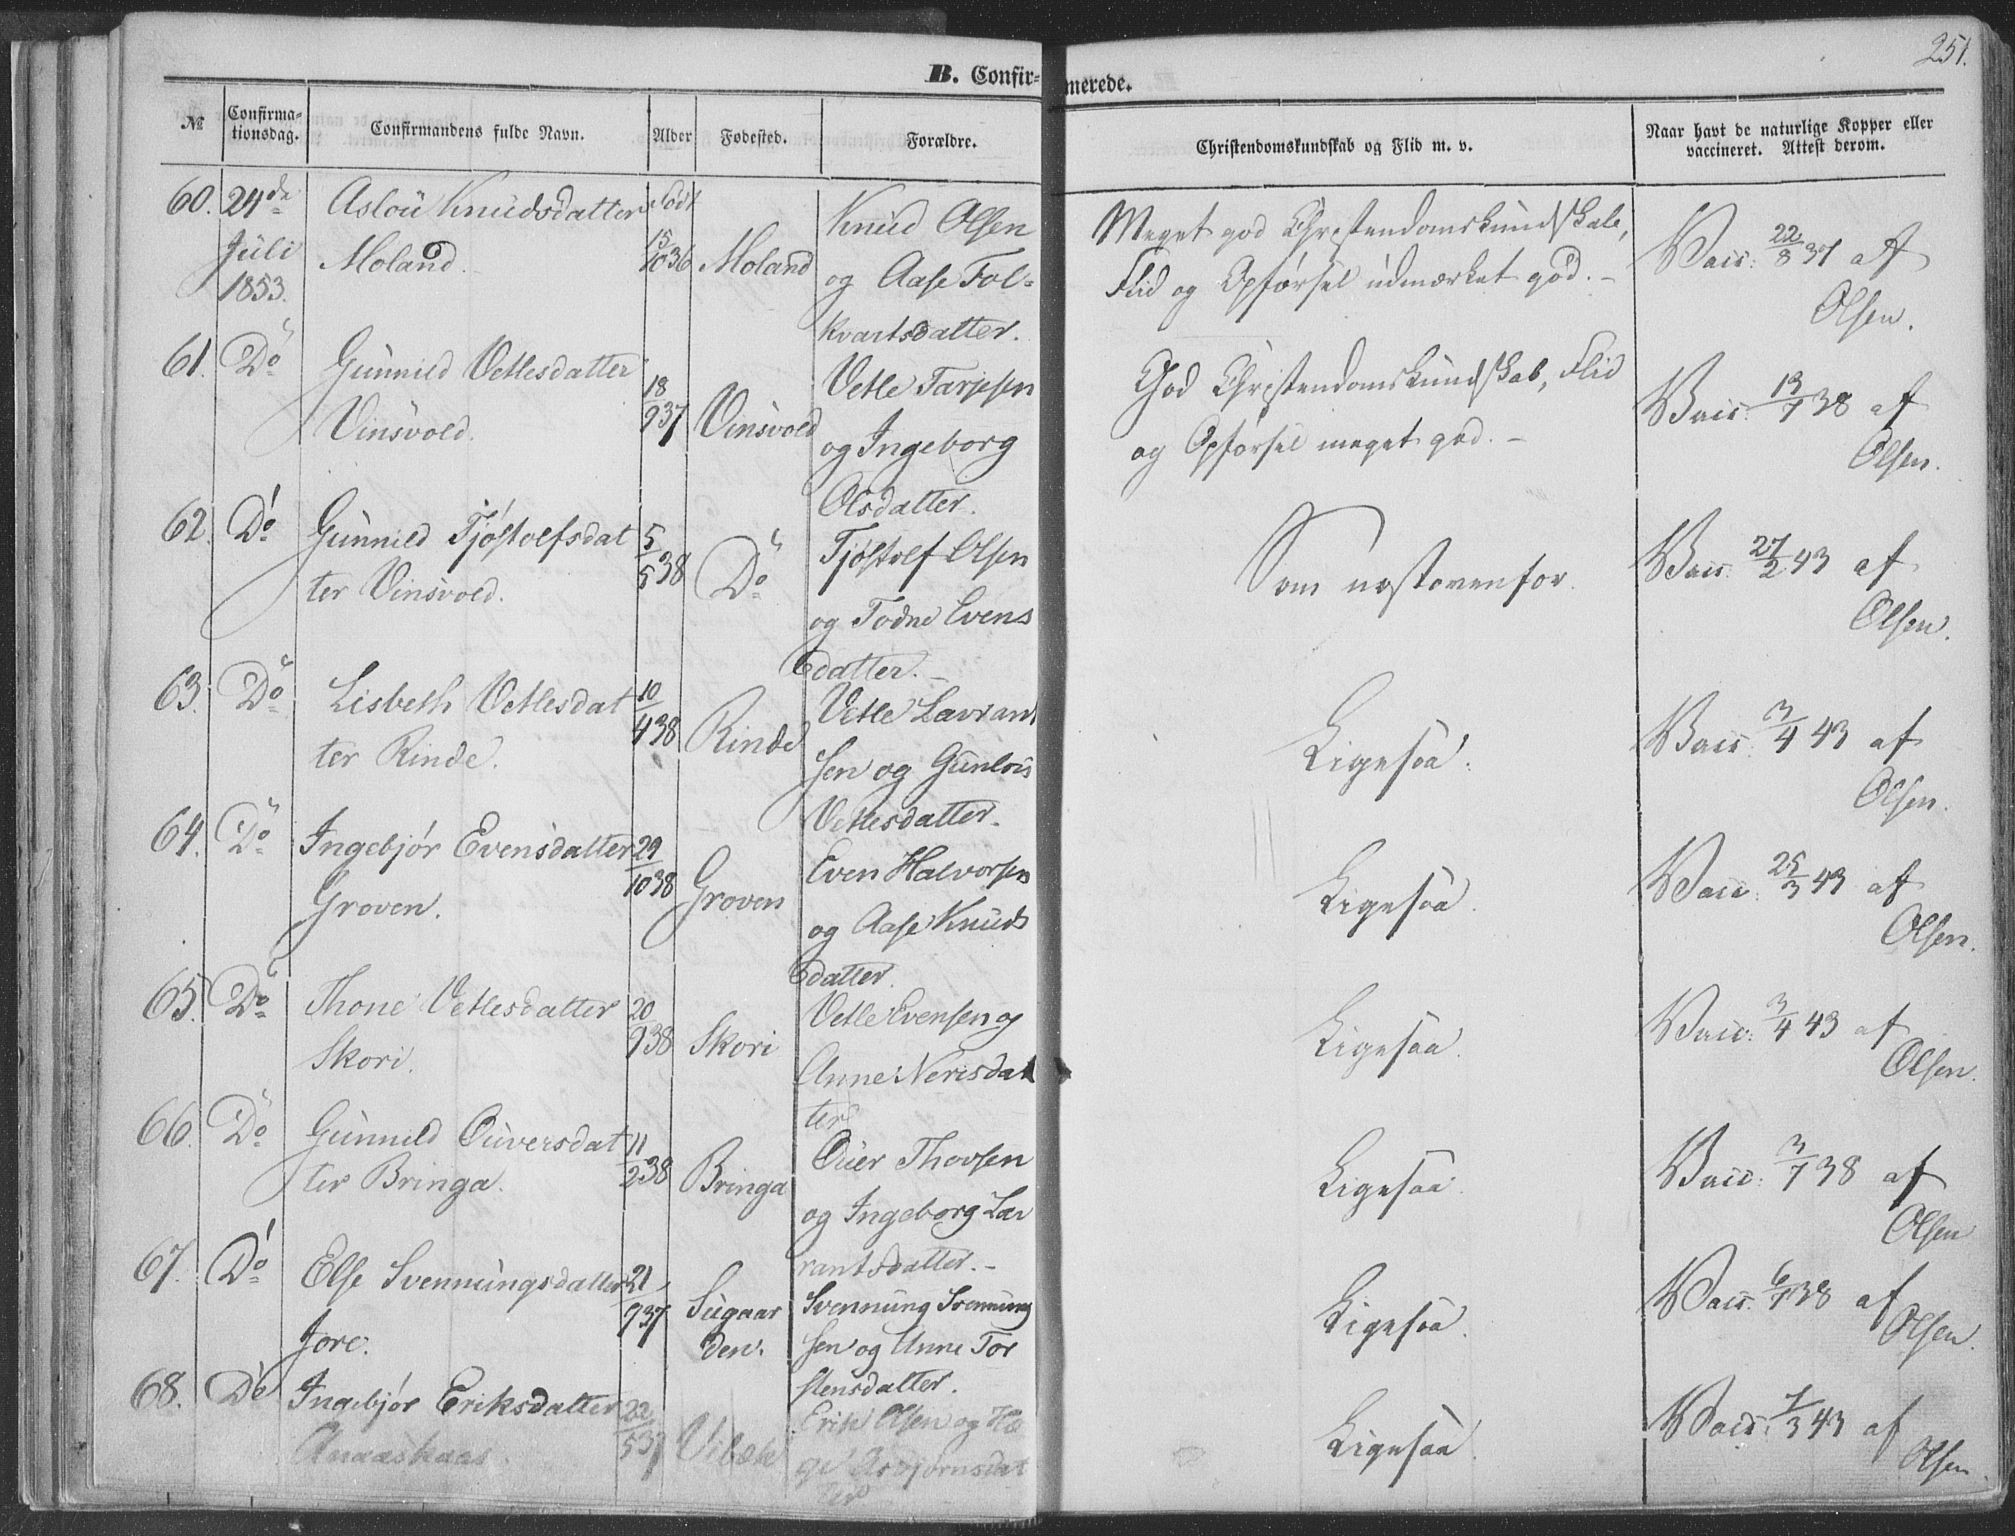 251.
B. Confirmerede.
№ Confirmationsdag. Confirmandens fulde Navn. Alder Fødested. Forældre. Christendomskundskab og Flid m. v. Naar havt de naturlige Kopper eller vaccineret. Attest derom.
60. 24de Aslou Knudsdatter Født Knud Olsen Meget god Christendomskundskab, Vacc: 22/8 37 af
Juli Moland. 15/10 36 Moland og Aase Fol- Flid og Opførsel udmærket god. – Olsen.
1853. kvartsdatter.
61. Do Gunnild Vetlesdatter 18/9 37 Vinsvold Vetle Tarjesen God Christendomskundskab, Flid Vacc: 13/7 38 af
Vinsvold. og Ingeborg og Opførsel meget god. – Olsen.
Olsdatter.
62. Do Gunnild Tjøstolfsdat 5/5 38 Do Tjøstolf Olsen Som næstovenfor. Vacc. 27/2 43 af
ter Vinsvold. og Todne Evens Olsen.
datter. –
63. Do Lisbeth Vetlesdat 10/4 38 Rinde Vetle Lavrant Ligesaa. Vacc. 3/4 43 af
ter Rinde. sen og Gunlou Olsen.
Vetlesdatter.
64. Do Ingebjør Evensdatter 29/10 38 Groven Even Halvorsen Ligesaa. Vacc. 25/3 43 af
Groven. og Aase Knuds Olsen.
datter.
65. Do Thone Vetlesdatter 20/9 38 Skori Vetle Evensen og Ligesaa. Vacc: 3/4 43 af
Skori. Anne Nerisdat Olsen.
ter
66. Do Gunnild Ouversdat 11/2 38 Bringa Ouer Thovsen Ligesaa. Vacc: 3/7 38 af
ter Bringa. og Ingeborg Lav Olsen
rantsdatter. –
67. Do Else Svennungsdatter 21/9 37 Sugaar Svennung Svennung Ligesaa. Vacc. 6/7 38 af
Jore. den. sen og Anne Tor Olsen.
stensdatter.
68. Do Ingebjør Eriksdatter 22/5 37 Vibæk Erik Olsen og Hæ Ligesaa Vacc. 7/3 43 af
ge Asbjørnsdat Olsen.
ter